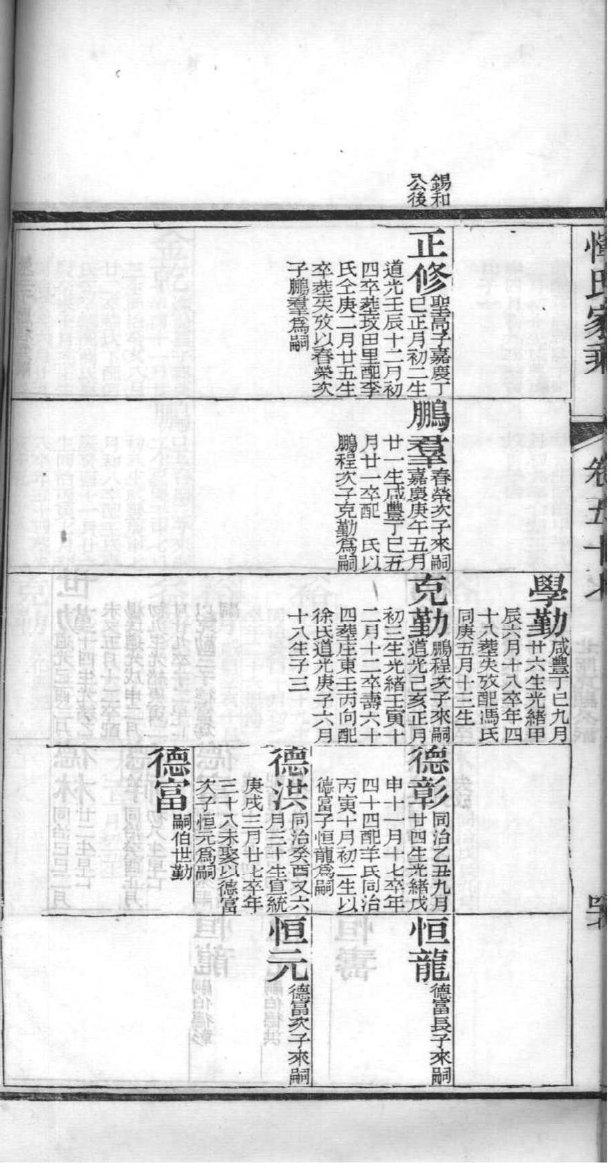 惲氏家乘
卷五十
錫和
公後
正修
聖高子嘉慶丁
巳正月初二生
道光壬辰十二月初
四卒葬坟田里配李
氏仝庚二月廿五生
卒葬失攷以春榮次
子鵬羣爲嗣
鵬羣
春榮次子來嗣
嘉慶庚午五月
廿一生咸豐丁巳五
月廿一卒配 氏以
鵬程次子克勤爲嗣
學勤
咸豐丁巳九月
廿六生光緒甲
辰六月十八卒年四
十八葬失攷配馮氏
同庚五月十三生
克勤
鵬程次子來嗣
道光己亥正月
初三生光緒壬寅十
二月十二卒壽六十
四葬庄東壬丙向配
徐氏道光庚子六月
十八生子三
德彰
同治乙丑九月
廿四生光緒戊
申十一月十七卒年
四十四配羊氏同治
丙寅十月初二生以
德富子恒龍爲嗣
德洪
同治癸酉又六
月三十生宣統
庚戌三月廿七卒年
三十八未娶以德富
次子恒元爲嗣
德富
嗣伯世勤
恒龍
德富長子來嗣
恒元
德富次子來嗣